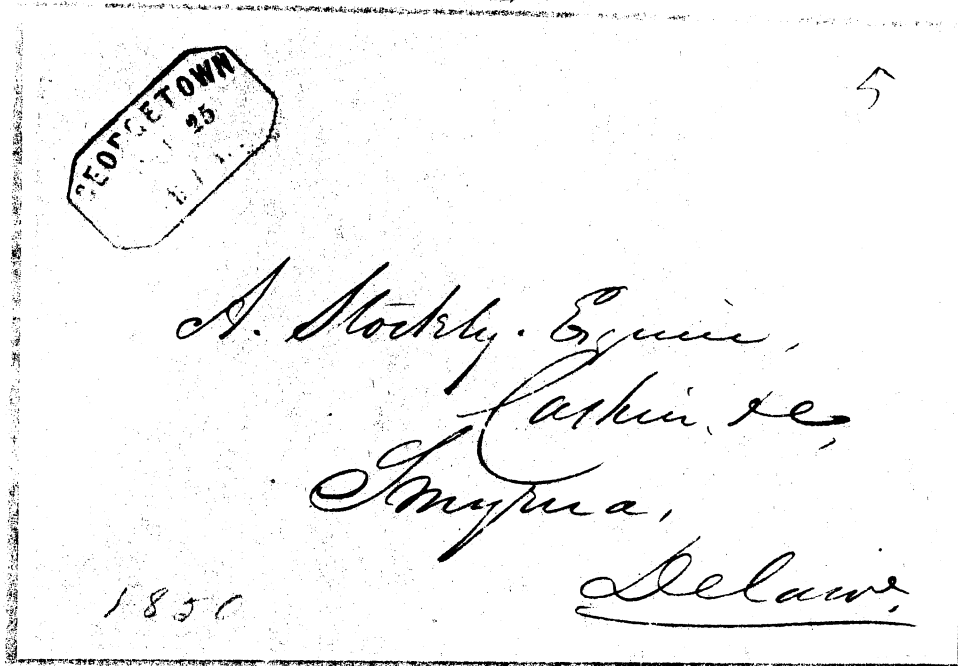 GEORGETOWN
25
5
A. Stockly. Esquire,
Cashier, &c,
Smyrna,
Delawe.